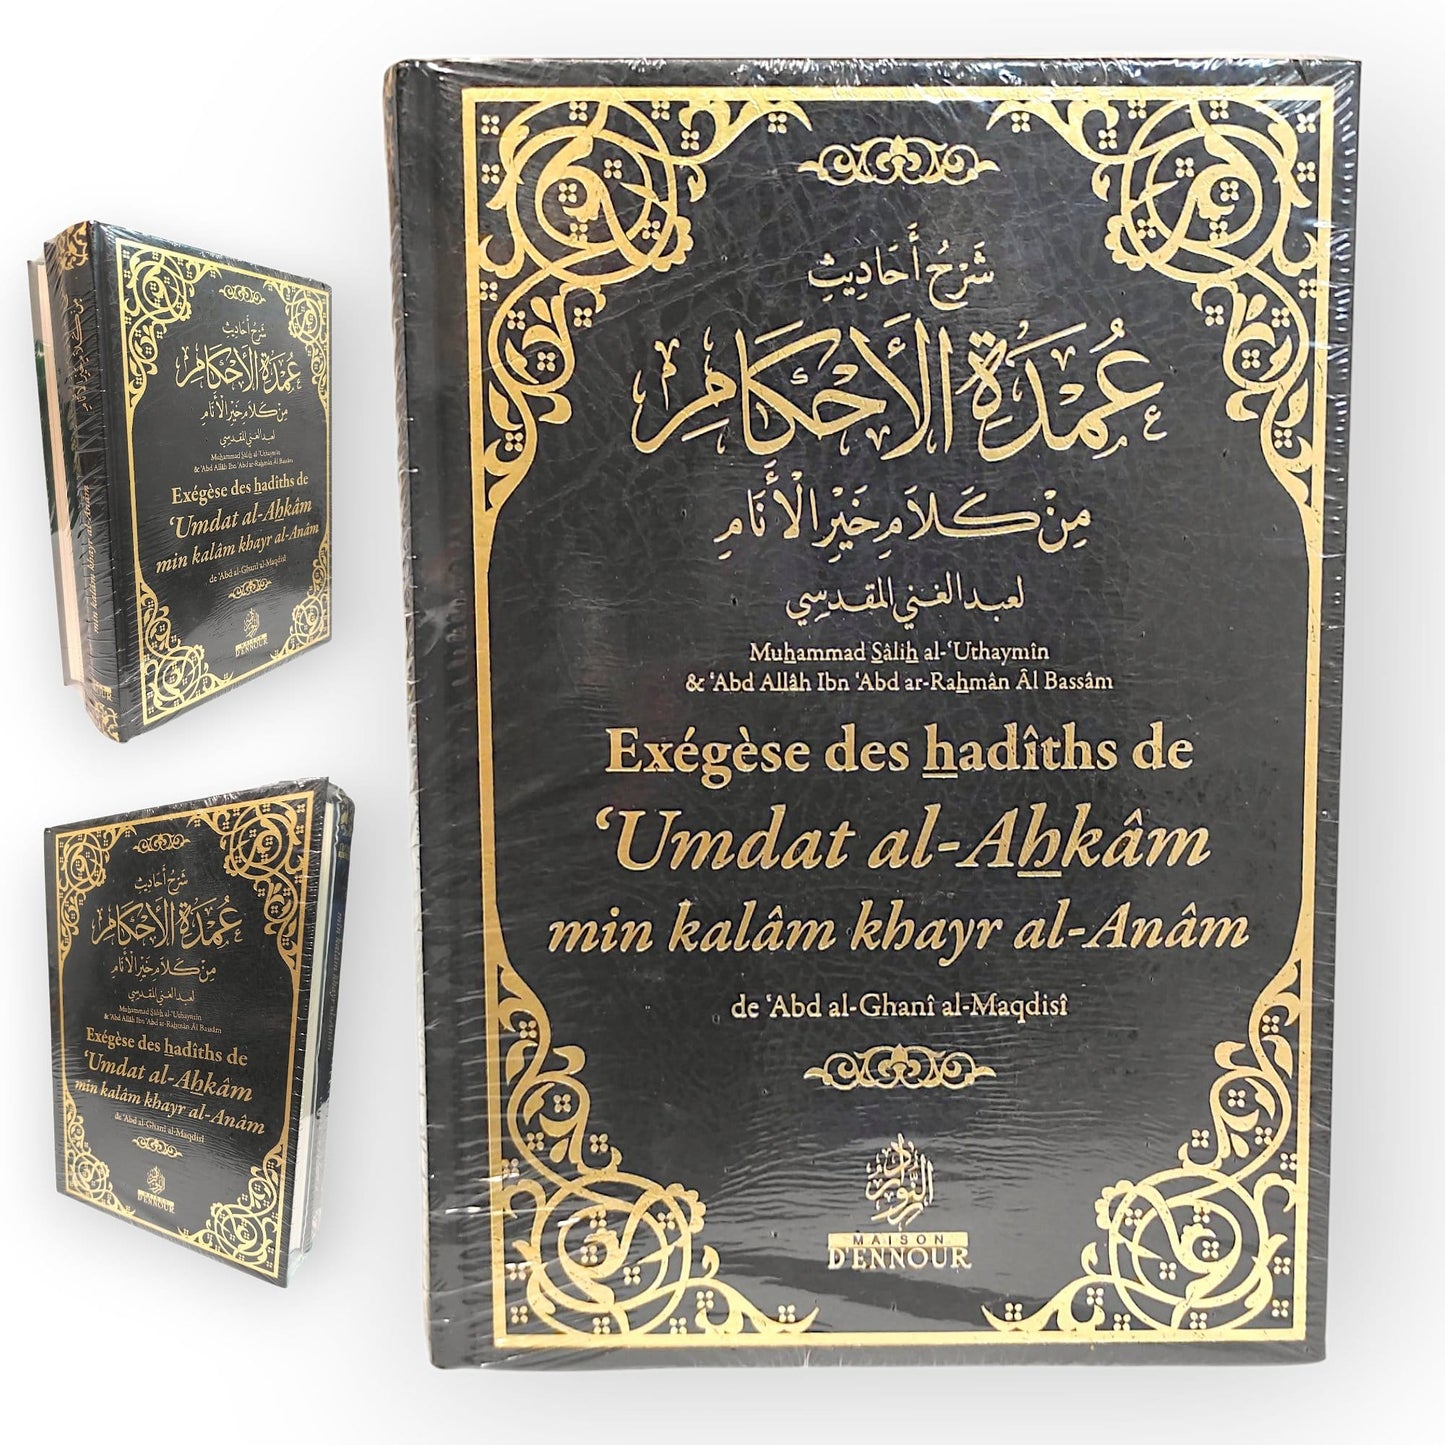 شَرْحُ أَحَادِيثِ
عُمْدَةِ الأَحْكَامِ
مِنْ كَلَامِ خَيْرِ الْأَنَامِ
لعبد الغني المقدسي
Muhammad Sâlih al-‘Uthaymîn
& ‘Abd Allâh Ibn ‘Abd ar-Rahmân Âl Bassâm
Exégèse des hadîths de
‘Umdat al-Ahkâm
min kalâm khayr al-Anâm
de ‘Abd al-Ghanî al-Maqdisî
MAISON
D'ENNOUR
شَرْحُ أَحَادِيثِ
عُمْدَةِ الأَحْكَامِ
مِنْ كَلَامِ خَيْرِ الْأَنَامِ
لعبد الغني المقدسي
Muhammad Sâlih al-‘Uthaymîn
& ‘Abd Allâh Ibn ‘Abd ar-Rahmân Âl Bassâm
Exégèse des hadîths de
‘Umdat al-Ahkâm
min kalâm khayr al-Anâm
de ‘Abd al-Ghanî al-Maqdisî
MAISON
D'ENNOUR
min kalâm khayr al-Anâm
شَرْحُ أَحَادِيثِ
عُمْدَةِ الأَحْكَامِ
مِنْ كَلَامِ خَيْرِ الْأَنَامِ
لعبد الغني المقدسي
Muhammad Sâlih al-‘Uthaymîn
& ‘Abd Allâh Ibn ‘Abd ar-Rahmân Âl Bassâm
Exégèse des hadîths de
‘Umdat al-Ahkâm
min kalâm khayr al-Anâm
de ‘Abd al-Ghanî al-Maqdisî
MAISON
D'ENNOUR
min kalâm khayr al-Anâm